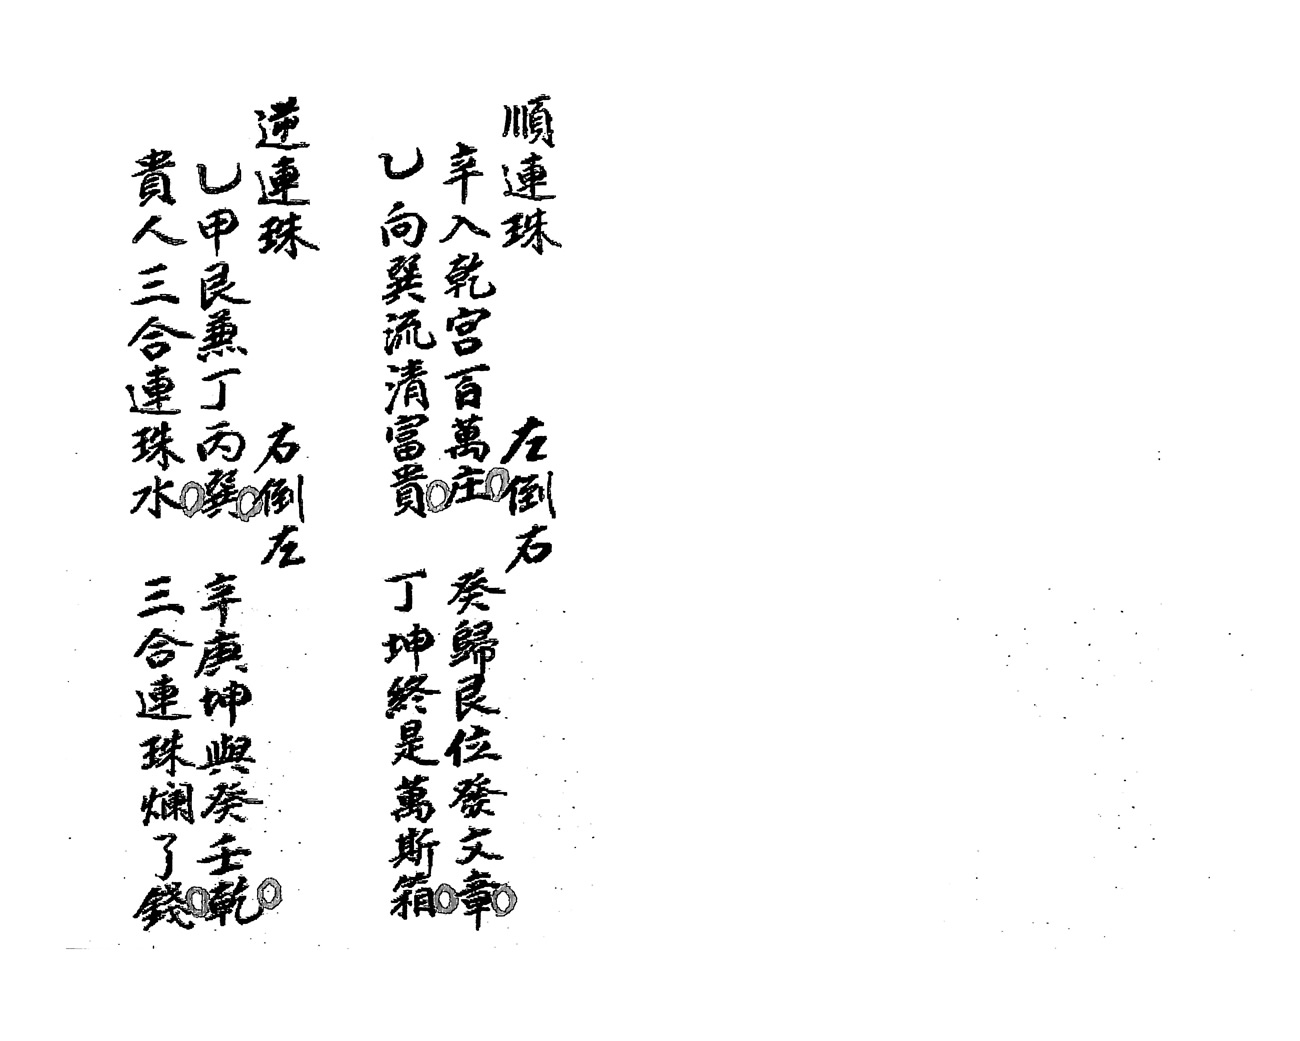 順連珠 左倒右
辛入乾宮百萬庄 癸歸艮位發文章
乙向巽流清富貴 丁坤終是萬斯箱
逆連珠 右倒左
乙甲艮兼丁丙巽 辛庚坤與癸壬乾
貴人三合連珠水 三合連珠爛了錢